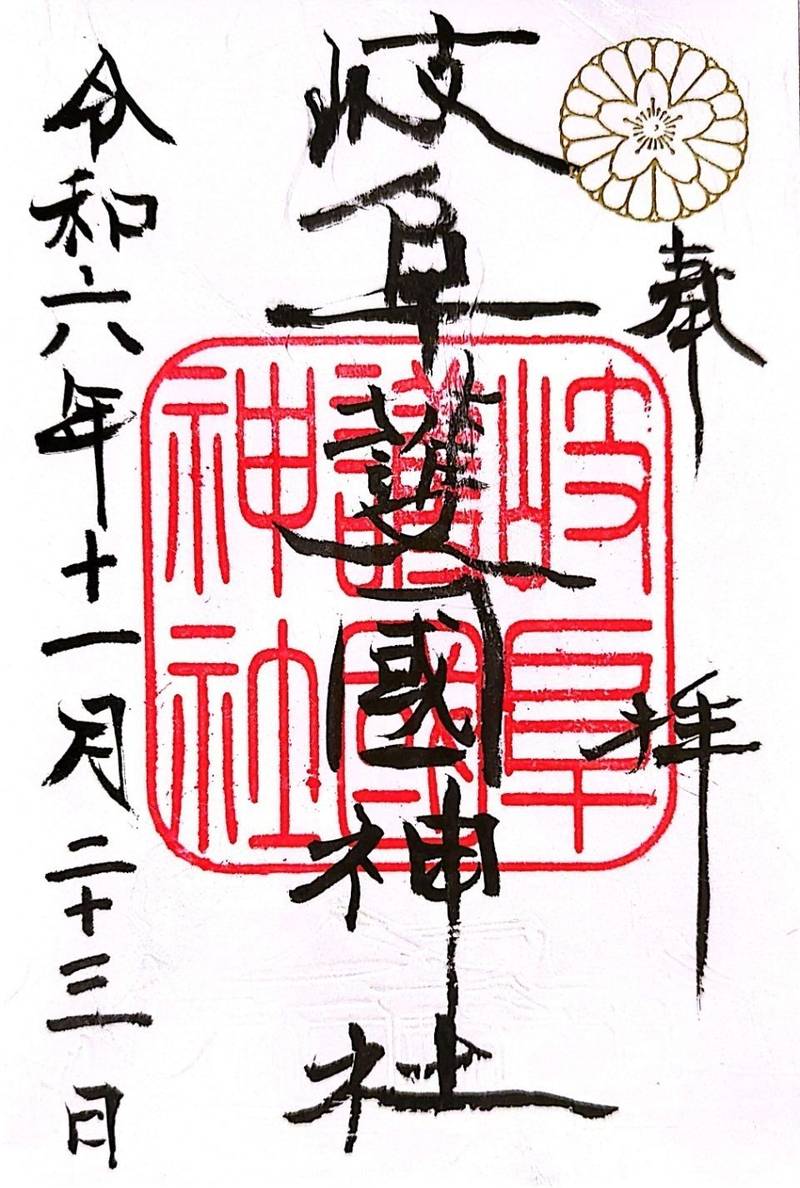 奉拝
岐阜護國神社
岐阜
護國
神社
令和六年十一月二十三日